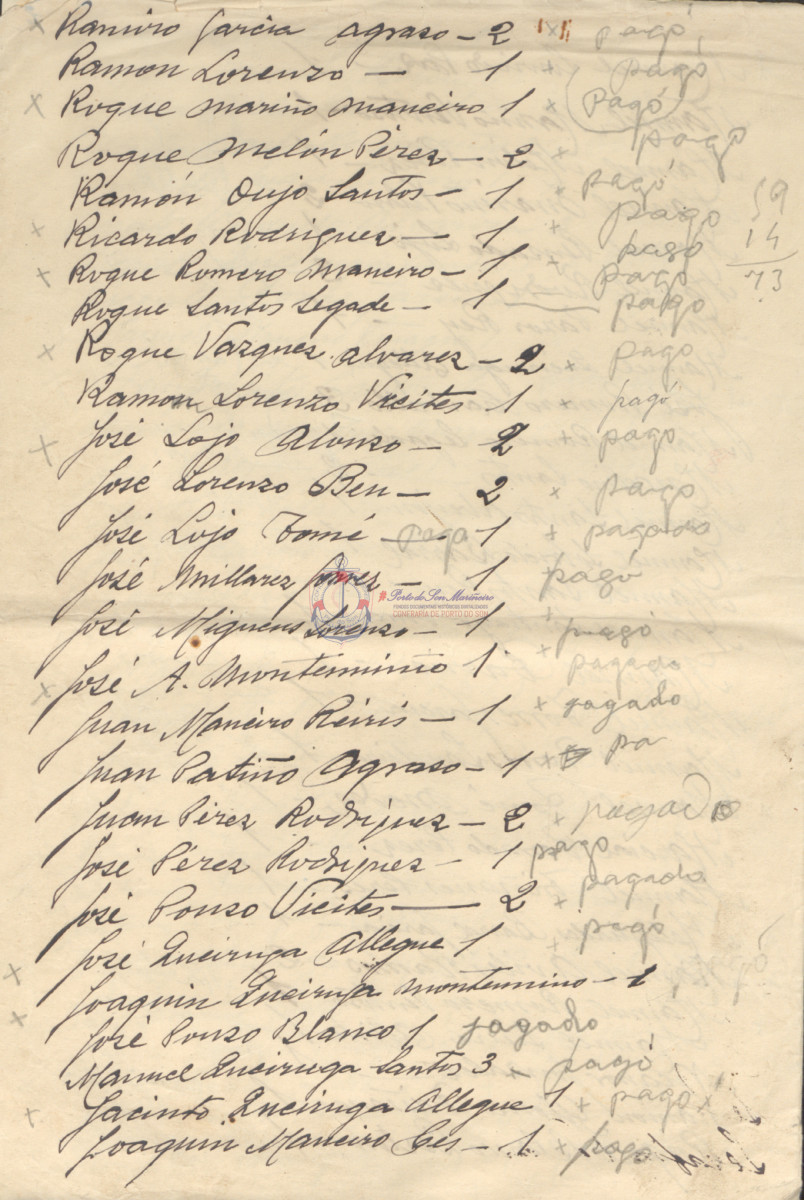 Ramiro Garcia Agraso - 2 x pagó
Ramon Lorenzo - 1 x pagó
x Roque Mariño Maneiro 1 x pagó
Roque Melón Pérez - 2 x pago
Ramón Oujo Santos - 1 x pagó
x Ricardo Rodriguez - 1 x pago
x Roque Romero Maneiro - 1 x pago
pago
Roque Santos Segade - 1 pago
x Roque Vazquez Alvarez - 2 x pago
Ramon Lorenzo Vieites 1 x pagó
x José Lojo Alonso - 2 x pago
José Lorenzo Ben - 2 x pagó
José Lojo Tomé - pago - 1 x pagado
José Millarez - 1 x pagó
#Porto do Son Mariñeiro
FONDOS DOCUMENTAIS HISTÓRICOS DIXITALIZADOS
CONFRARÍA DE PORTO DO SON
José Miguens Lorenzo - 1 pagó
x José A. Montemuiño 1 x pagado
Juan Maneiro Reiris - 1 x pagado
Juan Patiño Agraso - 1 x pa
Juan Pérez Rodriguez - 2 x pagado
José Pérez Rodriguez - 1 pago
José Ponso Vieites - 2 x pagado
José Queiruga Allegue 1 x pagó
x Joaquin Queiruga Montemuino - 1
x José Ponso Blanco 1 pagado
Manuel Queiruga Santos 3 - pagó
x Jacinto Queiruga Allegue 1 x pago x
Joaquin Maneiro Ces - 1 x pago
59
14
73